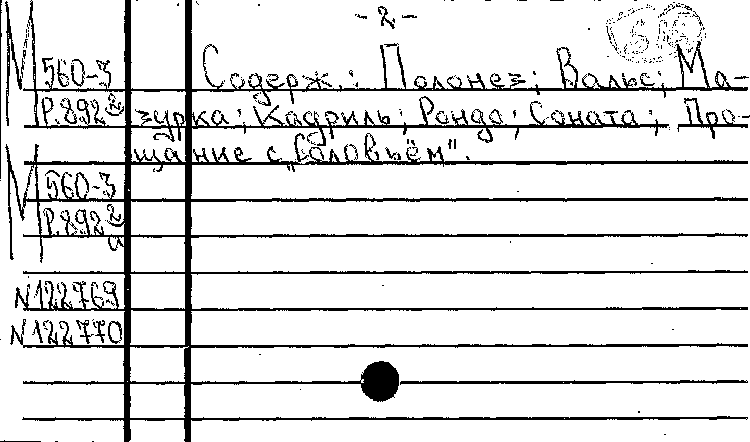 - 2 -
М 560-3 Содерж.: Полонез; Вальс; Ма-
Р.892 2 зурка; Кадриль; Рондо; Соната; Про-
щание с „Соловьём".
М 560-3
Р.892 2
а
N122769
N122770